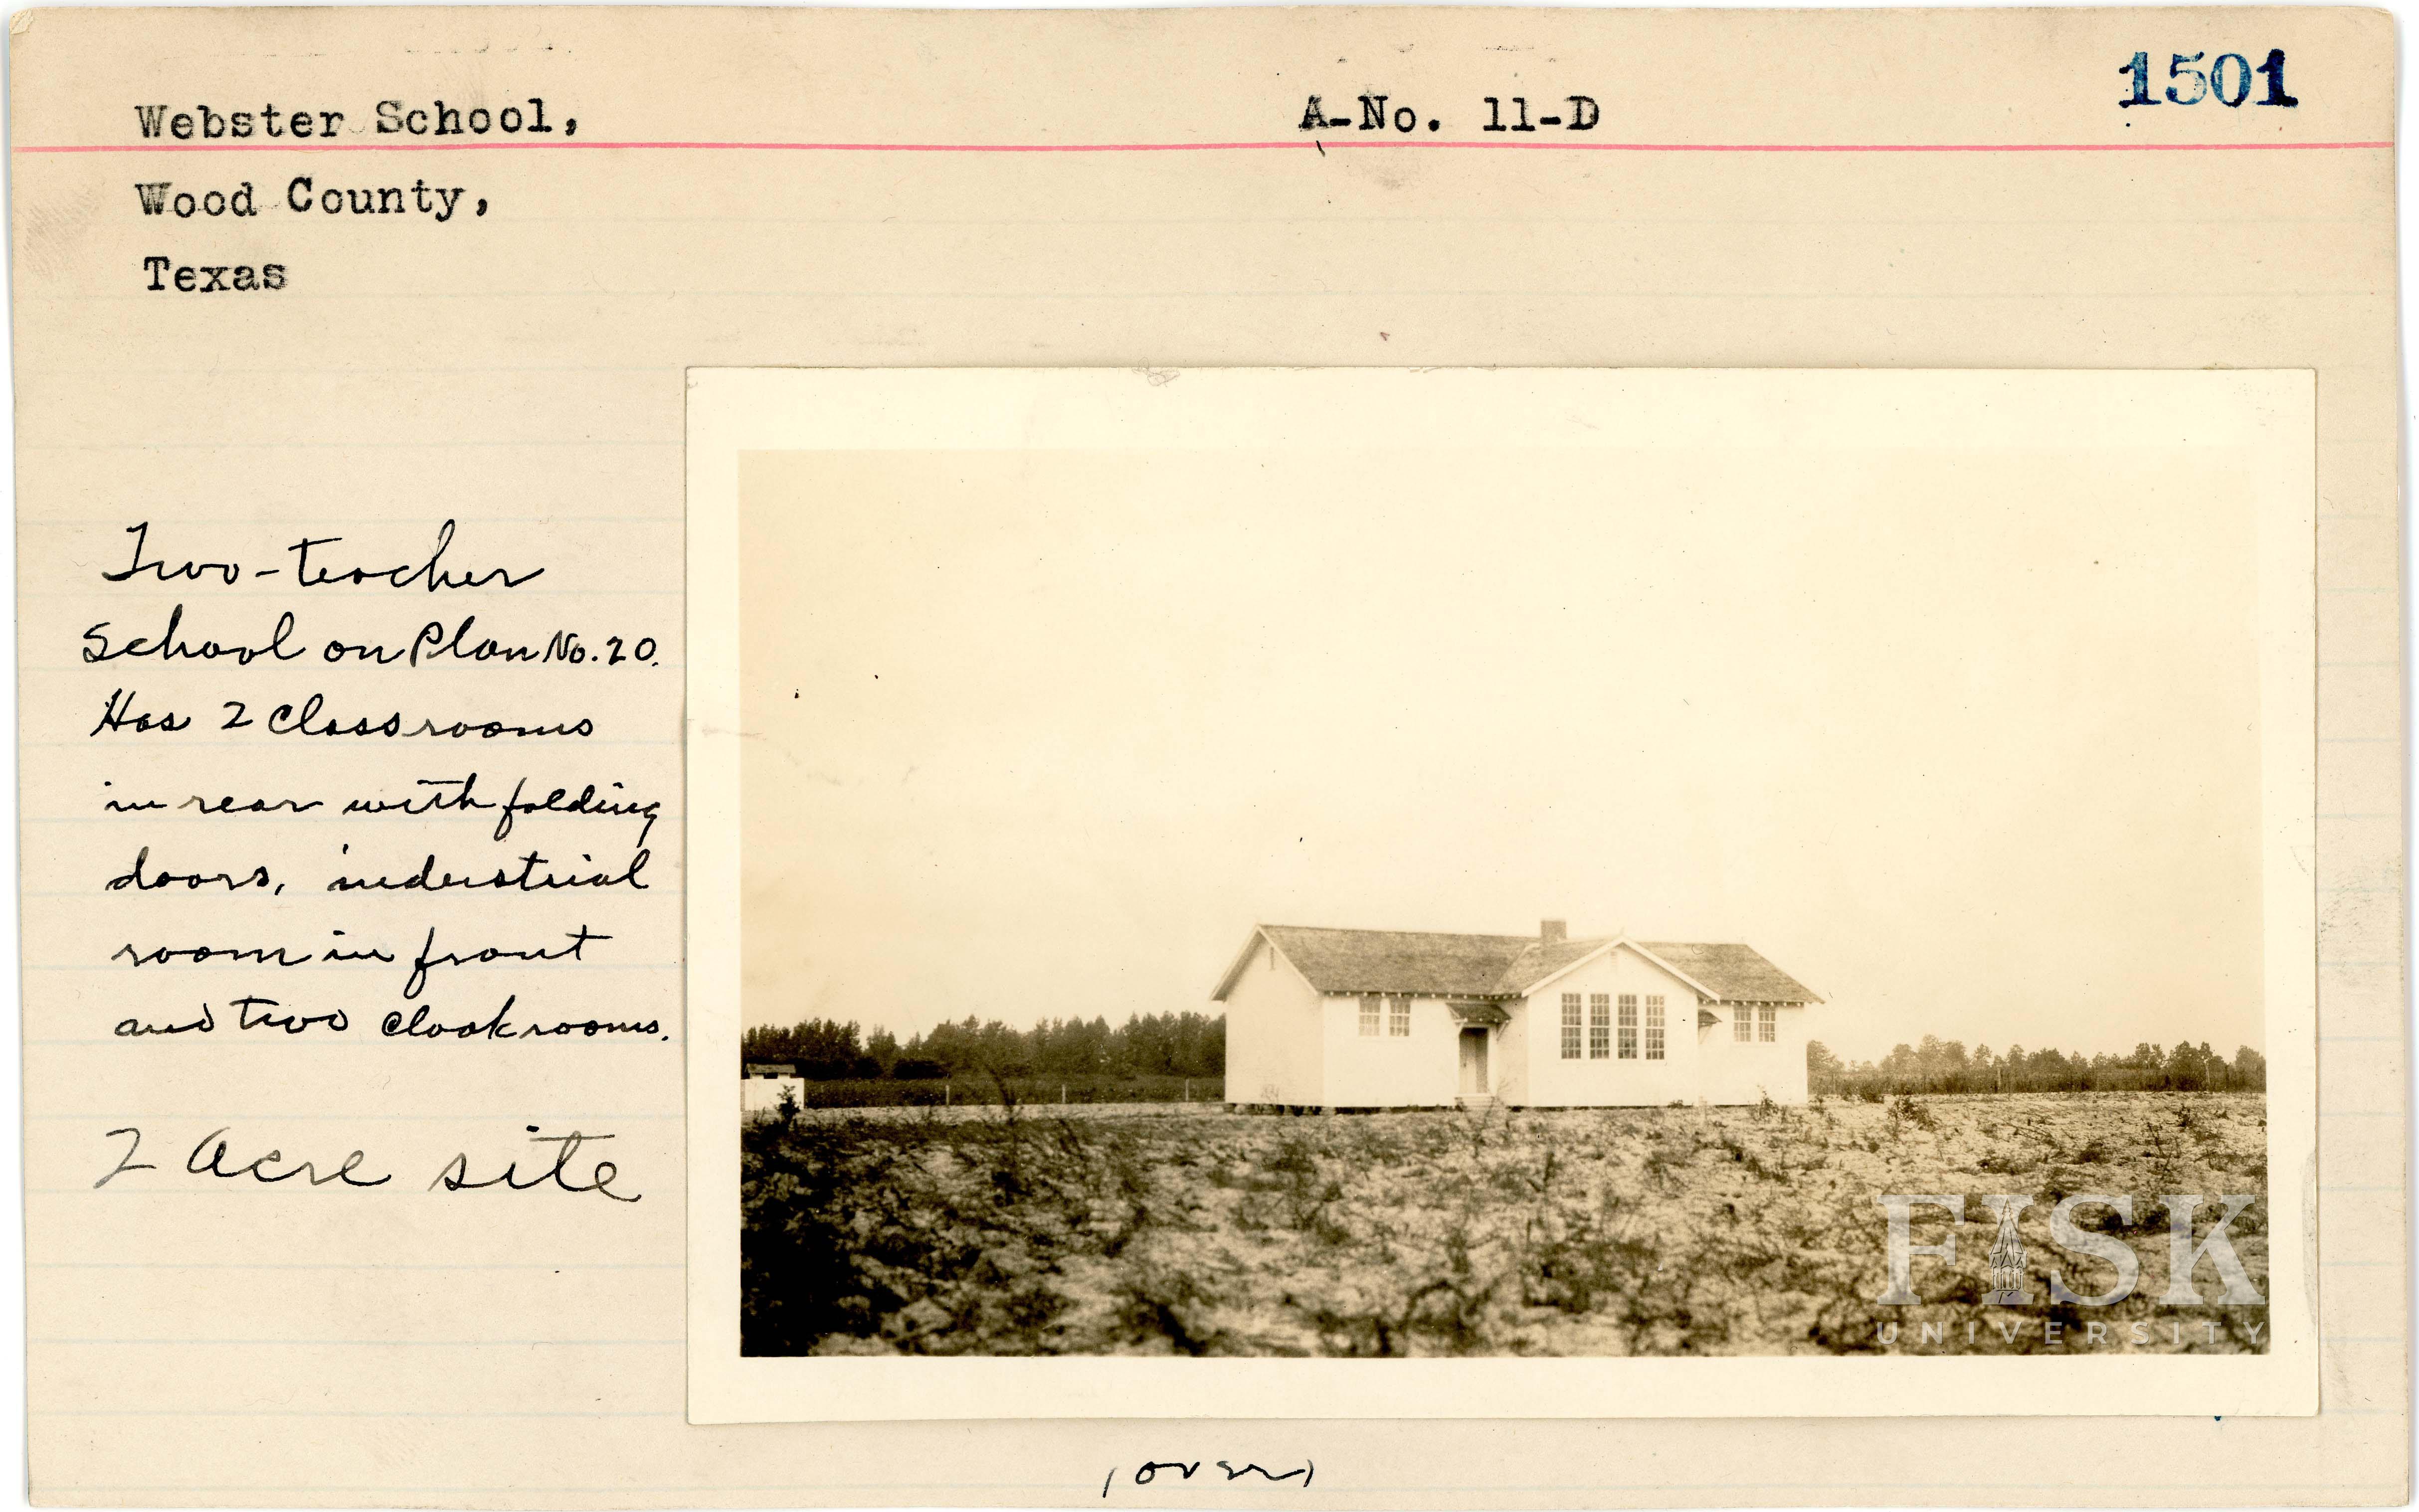 Webster School,
A-No. 11-D
1501
Wood County,
Texas
Two-teacher
School on Plan No. 20.
Has 2 Classrooms
in rear with folding
doors, industrial
room in front
and two cloakrooms.
2 Acre site
(over)
FISK
UNIVERSITY